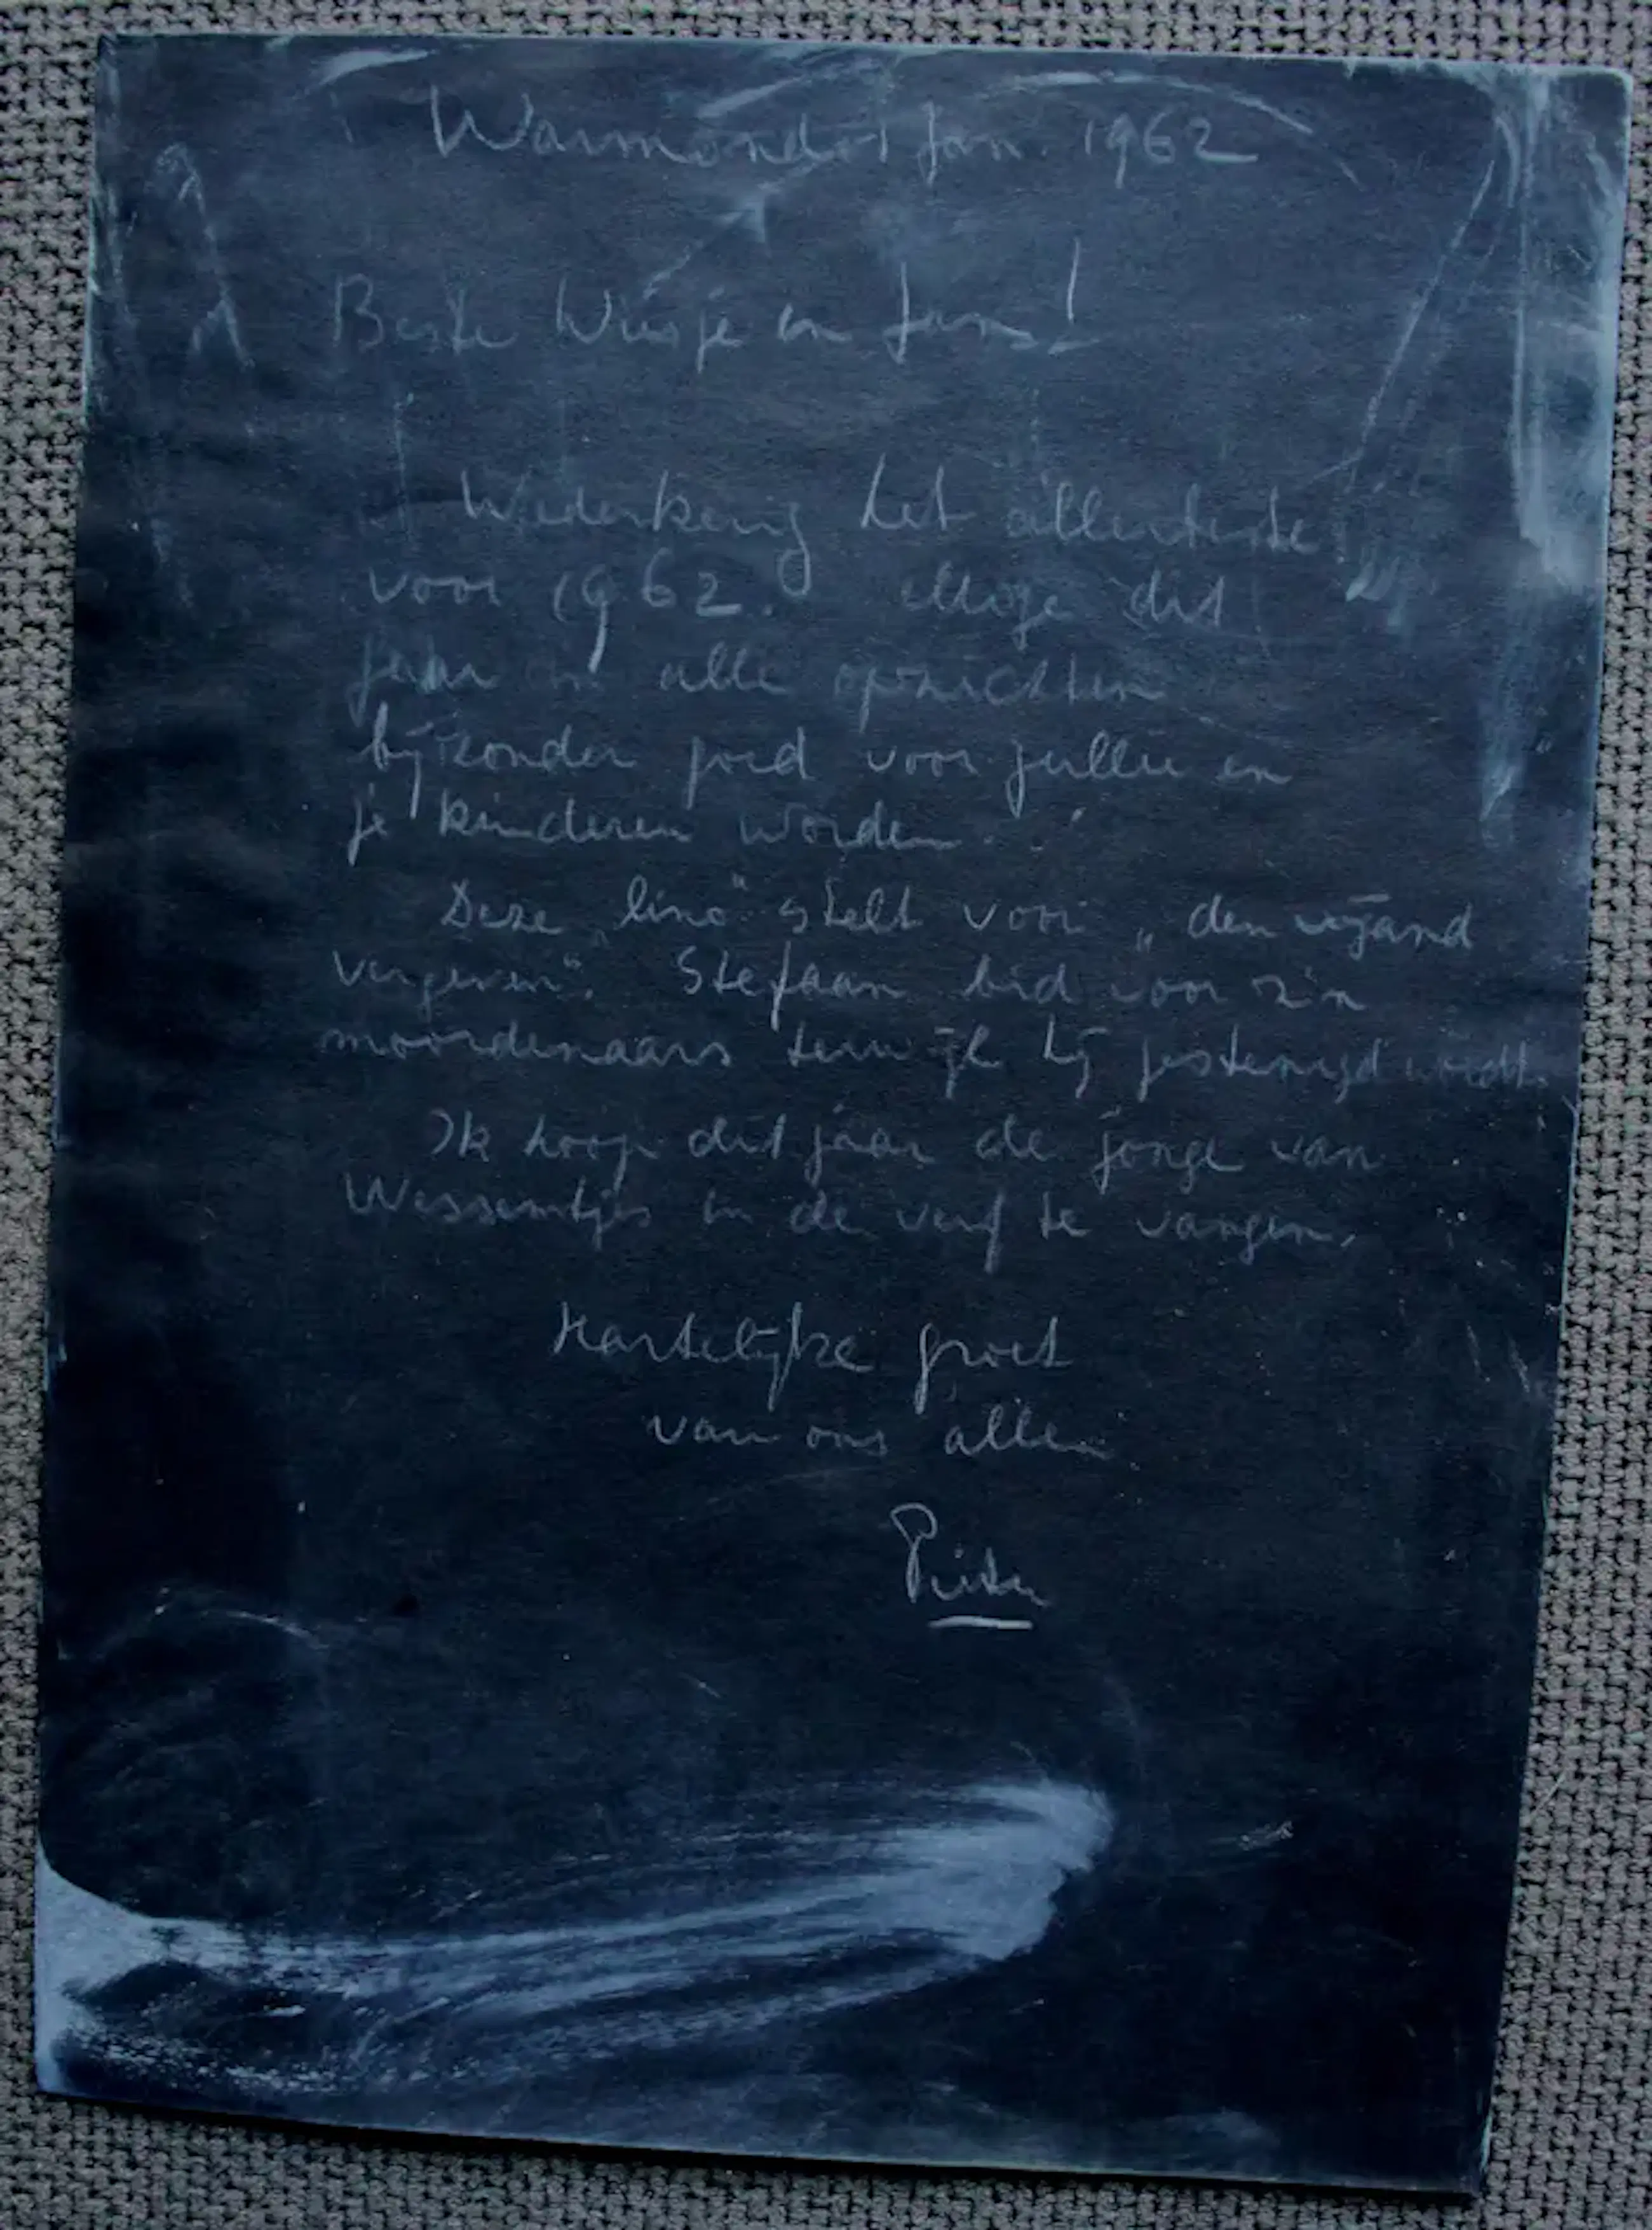 Warmond jan. 1962
Beste Wiesje en Jans!
Wederkerig het allerbeste
voor 1962. Moge dit
jaar in alle opzichten
bijzonder goed voor jullie en
je kinderen worden.
Deze „lino" stelt voor „den vijand
vergeven". Stefaan bid voor z'n
moordenaars terwijl hij gestenigd wordt.
Ik hoop dit jaar de jonge van
in de verf te vangen.
Hartelijke groet
van ons allen
Pieter